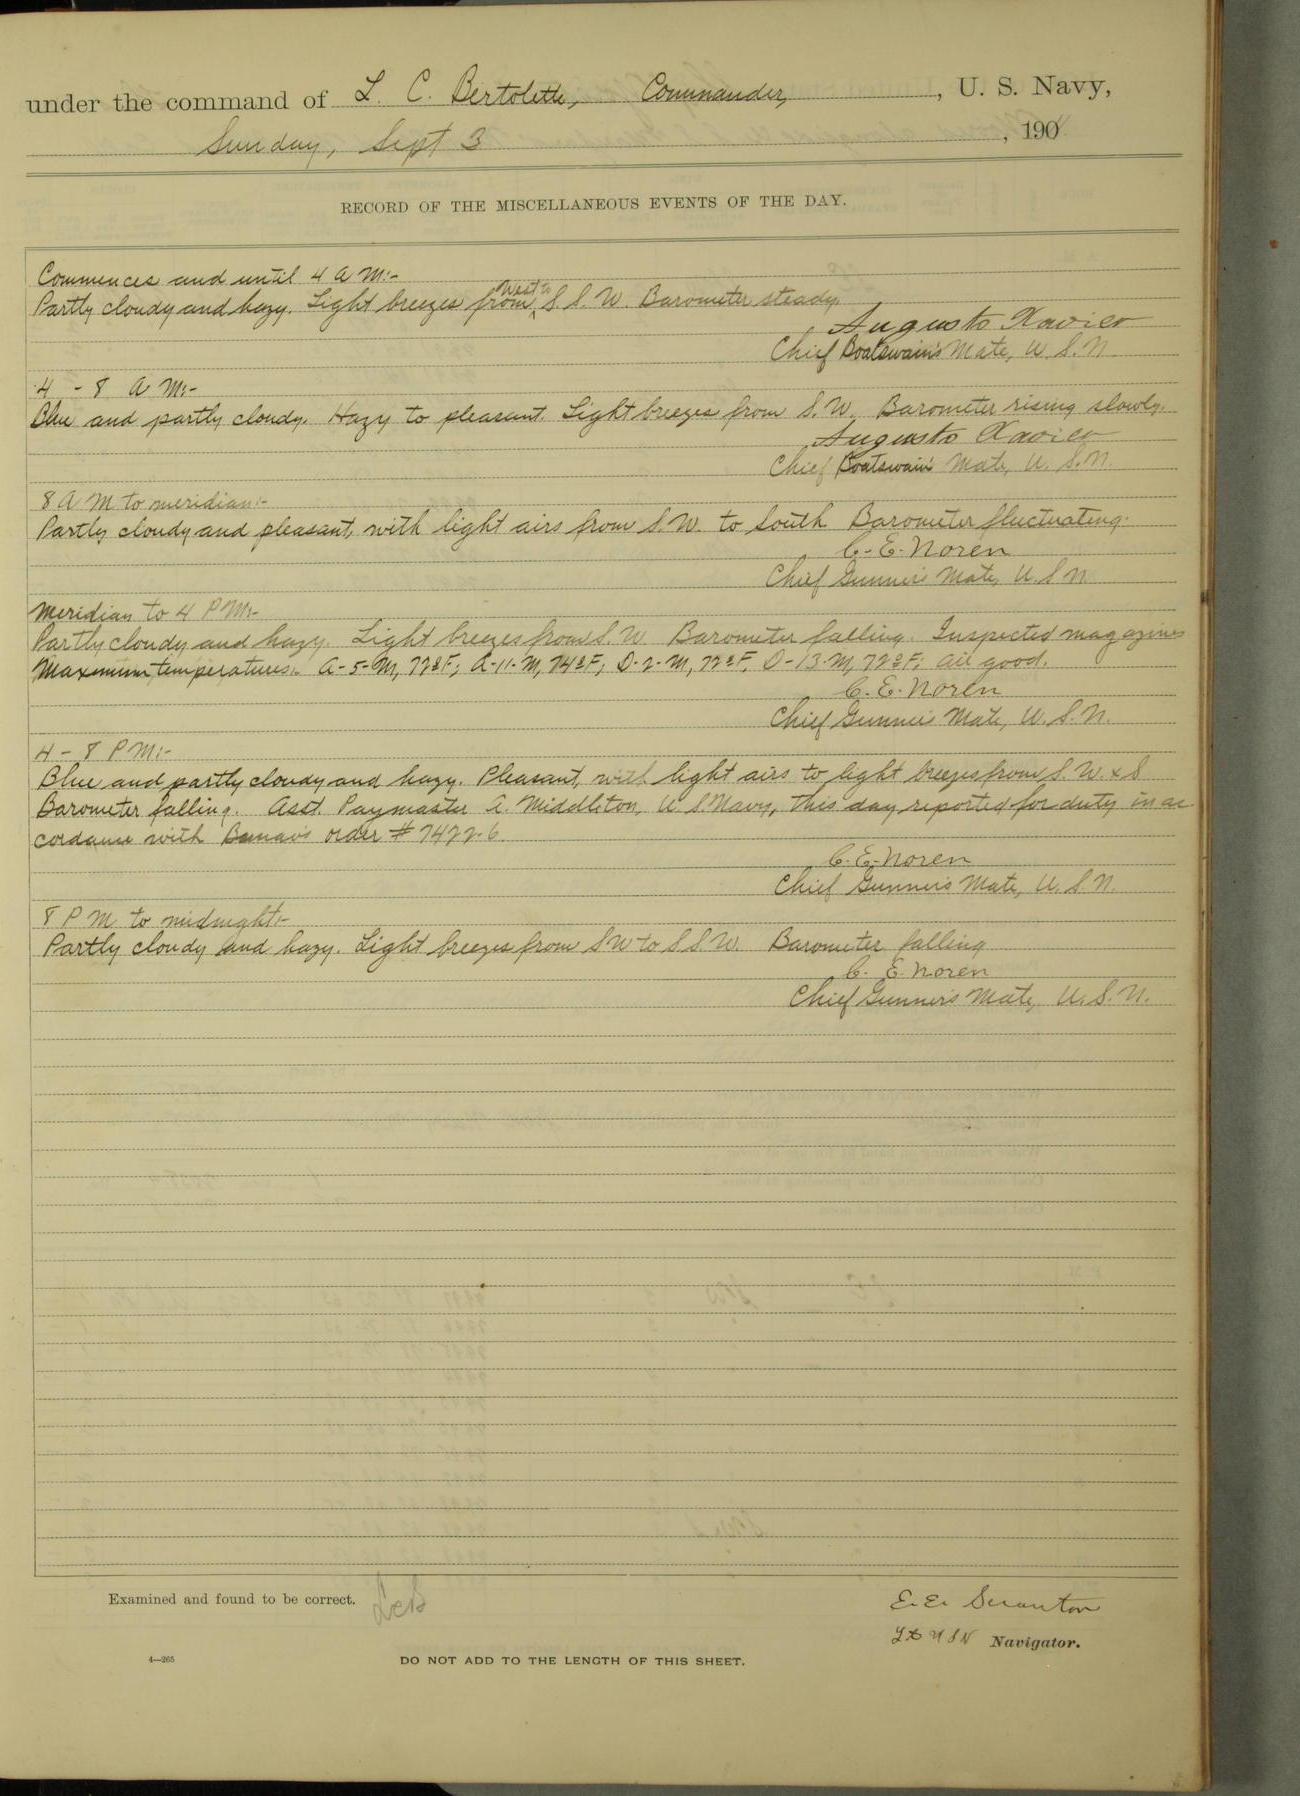 under the command of L. C. Bertolette, Commander, , U. S. Navy,
Sunday, Sept 3 , 190
RECORD OF THE MISCELLANEOUS EVENTS OF THE DAY.
Commences and until 4 A M:-
Partly cloudy and hazy. Light breezes from West to S S. W. Barometer steady.
Augusto Xavier
Chief Boatswain's Mate, U. S. N.
4 - 8 A M:-
Blue and partly cloudy. Hazy to pleasant. Light breezes from S. W. Barometer rising slowly.
Augusto Xavier
Chief Boatswain's Mate, U. S. N.
8 A M to meridian:-
Partly cloudy and pleasant, with light airs from S. W. to South Barometer fluctuating.
C. E. Noren
Chief Gunner's Mate, U. S. N
Meridian to 4 P M:-
Partly cloudy and hazy. Light breezes from S. W. Barometer falling. Inspected magazines
Maximum temperatures:- A-5-M, 72°F; A-11-M, 74°F; D-2-M, 72°F, D-13-M, 72°F; all good.
C. E. Noren
Chief Gunner's Mate, U. S. N.
4 - 8 P M:-
Blue and partly cloudy and hazy. Pleasant, with light airs to light breezes from S. W. & S
Barometer falling. Asst. Paymaster A. Middleton, U. S. Navy, this day reported for duty in ac
cordance with Bunav's order # 7422-6.
C. E. Noren
Chief Gunner's Mate, U. S. N.
8 P M to midnight:-
Partly cloudy and hazy. Light breezes from SW to S S. W. Barometer falling
C. E. Noren
Chief Gunner's Mate, U. S. N.
Examined and found to be correct. LCB
E. E. Scranton
Lt U S N Navigator.
4—265
DO NOT ADD TO THE LENGTH OF THIS SHEET.